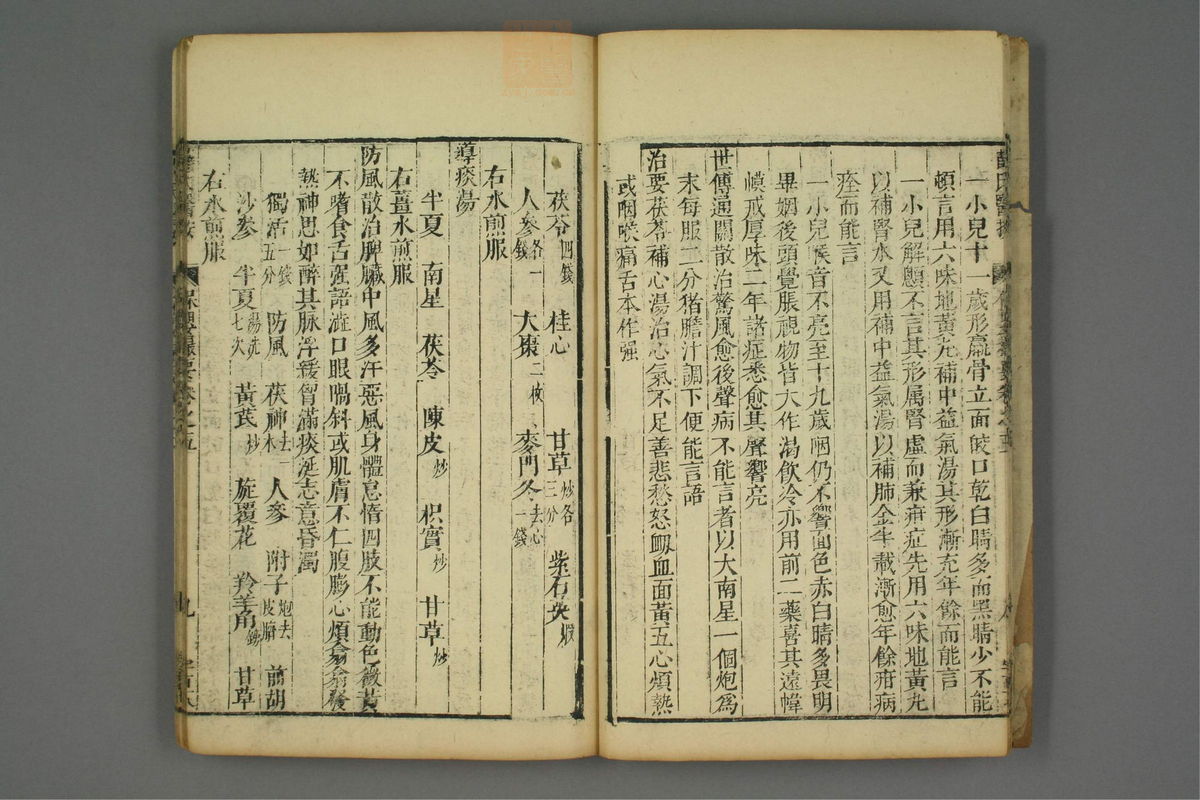 一小兒十一歲形羸骨立面㿠口乾白睛多而黑睛少不能
頓言用六味地黃丸補中益氣湯其形漸充年餘而能言
一小兒解顱不言其形属腎虛而兼疳症先用六味地黃丸
以補腎水又用補中益氣湯以補肺金半載漸愈年餘疳病
痊而能言
一小兒候音不亮至十九歲咽仍不響面色赤白睛多畏明
畢姻後頭覺脹視物皆大作渴飲冷亦用前二藥喜其遠幃
幙戒厚味二年諸症悉愈其聲響亮
世傳通關散治驚風愈後聲病不能言者以大南星一個炮為
末每服二分猪膽汁調下便能言語
治要茯苓補心湯治心氣不足善悲愁怒衂血面黃五心煩熱
或咽喉痛舌本作强
茯苓四錢 桂心 甘草炒各三分 紫石英煅
人參各一錢 大棗二枚 麥門冬去心一錢
右水煎服
導痰湯
半夏 南星 茯苓 陳皮炒 枳實炒 甘草炒
右薑水煎服
防風散治脾臟中風多汗惡風身體怠惰四肢不能動色微黃
不嗜食舌强語澁口眼喎斜或肌膚不仁腹膨心煩翕翕發
熱神思如醉其脉浮緩胷滿痰涎志意昏濁
獨活一錢五分 防風 茯神去木 人參 附子炮去皮臍 前胡
沙參 半夏湯洗七次 黃芪炒 旋覆花 羚羊角鎊 甘草
右水煎服